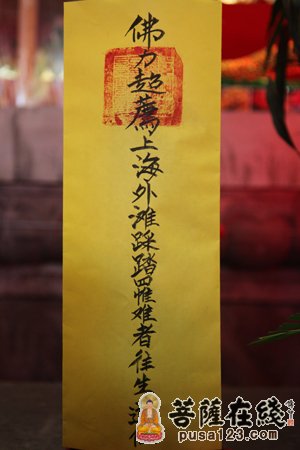 佛力超薦上海外滩踩踏罹难者往生
菩薩在线
pusa123.com